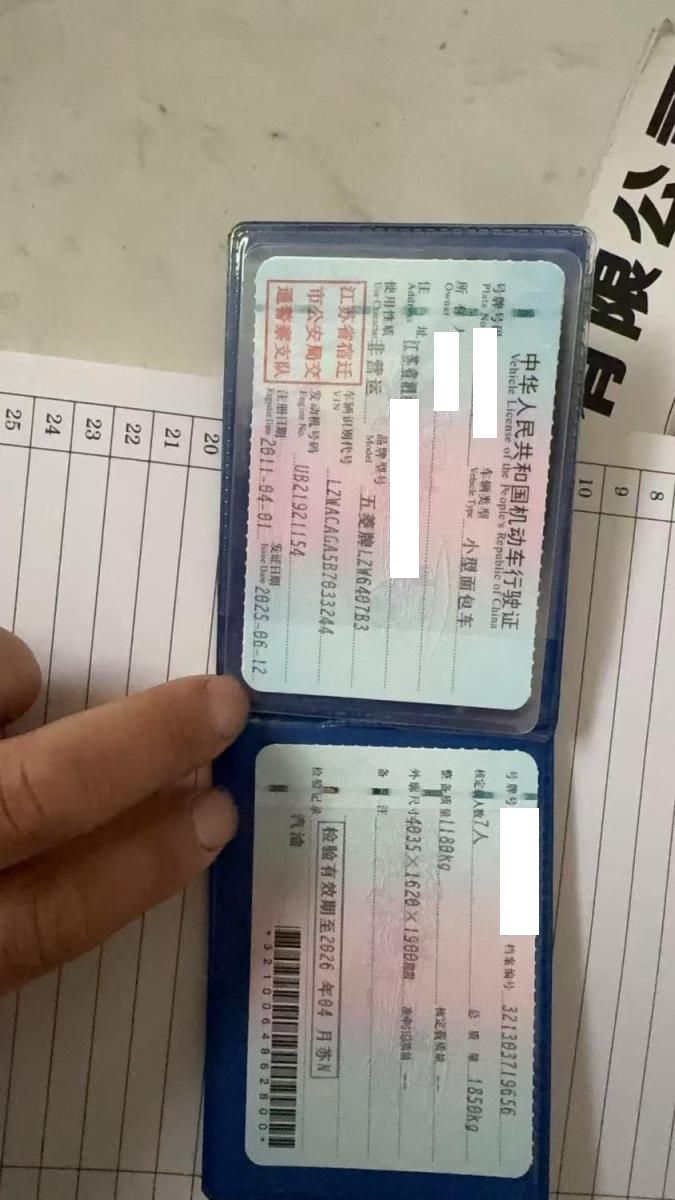 中华人民共和国机动车行驶证
Vehicle License of the People's Republic of China
号牌号码
Plate No.
车辆类型 小型面包车
Vehicle Type
所有人
Owner
住址 江苏省泗
Address
使用性质 非营运
Use Character
品牌型号 五菱牌LZW6407B3
Model
江苏省宿迁
市公安局交
通警察支队
车辆识别代号 LZWACAGA5B7033244
VIN
发动机号码 UB21921154
Engine No.
注册日期 2011-04-01 发证日期 2025-06-12
Register Date Issue Date
号牌号 档案编号 321303719656
核定载人数 7人 总质量 1850kg
整备质量 1180kg 核定载质量 --
外廓尺寸 4035×1620×1900mm 准牵引总质量 --
备注
检验记录 检验有效期至2026年04月苏N
汽油
*3210064862800*
有限公司
8
9
10
20
21
22
23
24
25